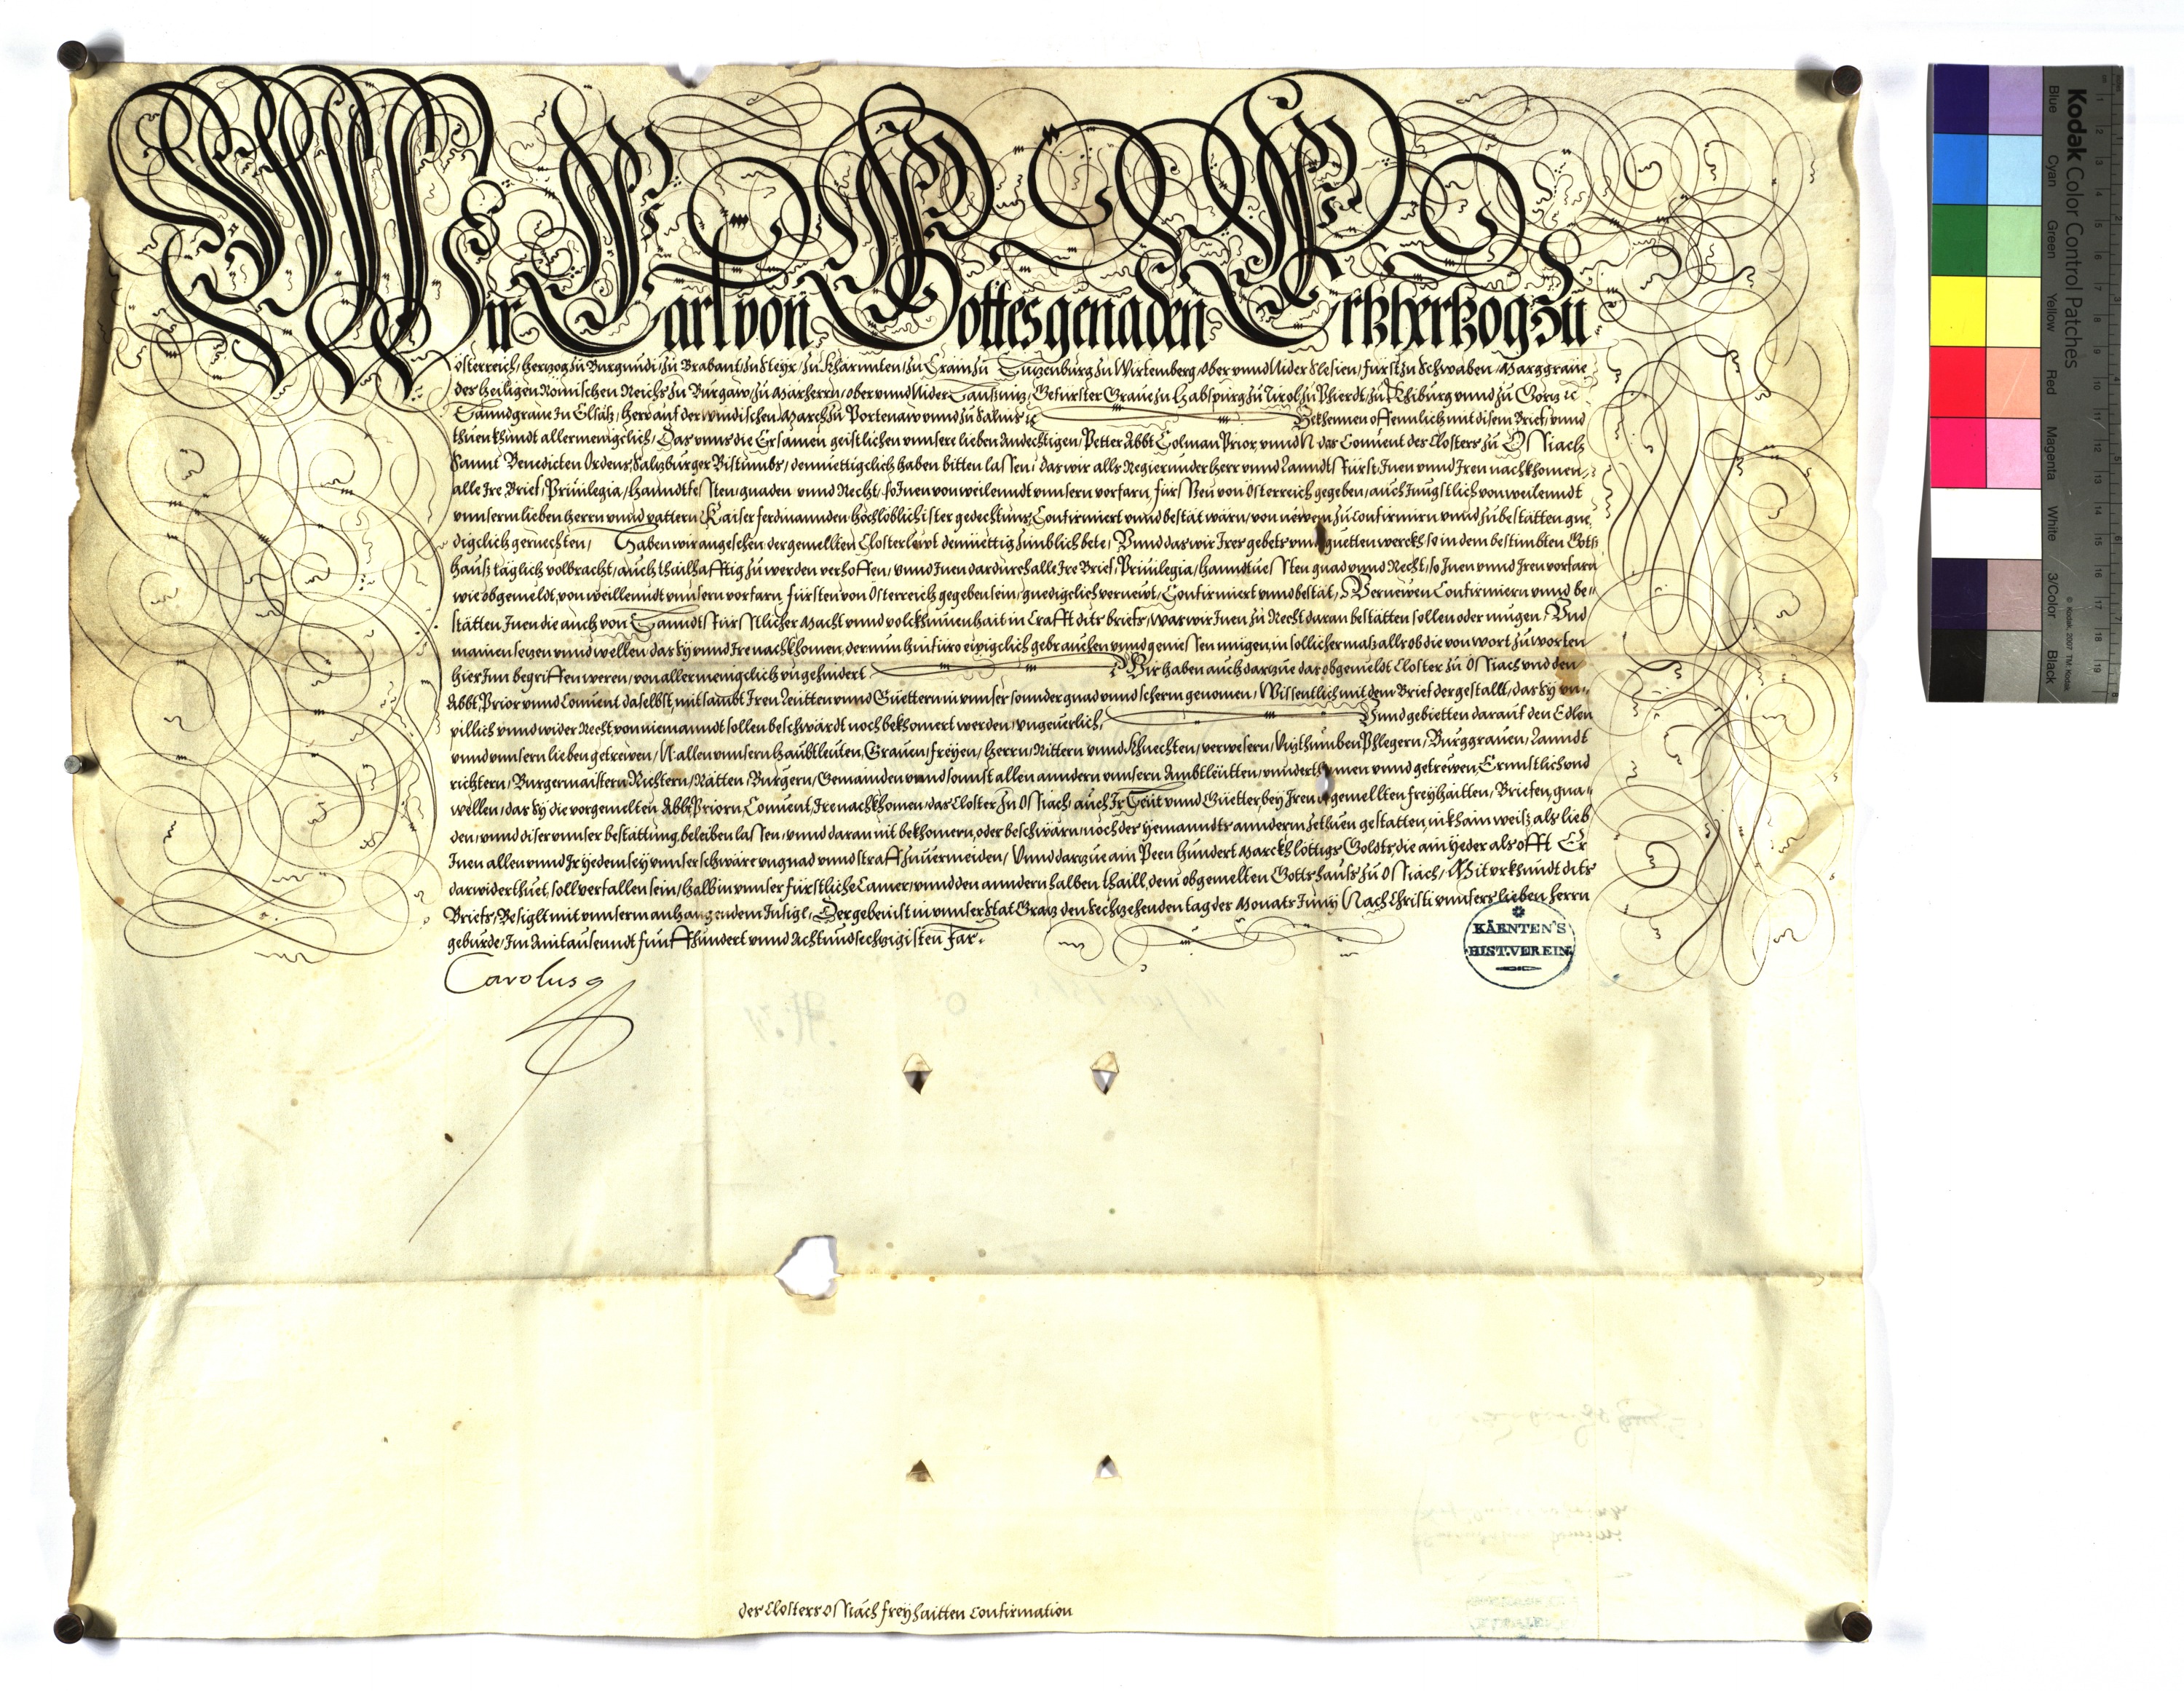 Wir Carl von Gottes genaden Ertzhertzog zu
Österreich, Hertzog zu Burgundi, zu Brabant, zu Steyr, zu Kharnnten, zu Crain, zu Lutzenburg, zu Wirtemberg, ober vnnd Nider Slesien, Fürst zu Schwaben, Marggraue
des Heiligen Römischen Reichs zu Burgaw, zu Marhernn, ober vnnd Nider Lausznitz, Gefürster Graue zu Habspurg, zu Tirol, zu Phierdt, zu Khiburg vnnd zu Görtz ꝛc
Lanndtgraue In Elsäsz, Herr auf der windischen March zu Portenaw vnnd zu Salins ꝛc Bekhennen offennlich mit disem Brief, vnnd
thuen khundt allermenigclich, Das vnns die Ersamen geistlichen vnnsere lieben Andechtigen, Petter Abbt Colman Prior, vnnd N das Conuent des Closters zu Ossiach
Sannt Benedicten Ordens, Saltzburger Bistumbs, demüettigclich haben bitten lassen, das wir alls Regierunder Herr vnnd Lanndts Fürst Inen vnnd Iren nachkhomen,
alle Ire Brief, Priuilegia, Hanndtfessten, gnaden vnnd Recht, so Inen von weilenndt vnnsern vorfarn, fürssten von Österreich gegeben, auch Jüngstlich von weilenndt
vnnserm lieben Herrn vnnd vattern Kaiser ferdinannden Hochlöblichister gedechtüns, Confirmiert vnnd bestät wärn, von newem zu Confirmirn vnnd zu bestätten gne
digclich geruechten, Haben wir angesehen der gemellten Closterlewt demüettig zimblich bete, Vnnd das wir Ires gebets vnnd guetten werckhs so in dem bestimbten Gots
hausz täglich volbracht, auch thailhafftig zu werden verhoffen, vnnd Inen dardurch all Ire Brief, Priuilegia, Hanndtuessten gnad vnnd Recht, so Inen vnnd Iren vorfarn
wie obgemeldt, von weillenndt vnnsern vorfarn, fürsten von Österreich gegeben sein, gnedigclich vernewt, Confirmiert vnnd bestät, Vernewen Confirmiern vnnd be
stätten Inen die auch von Lanndts Fürsstlicher Macht vnnd volckhumenhait in Crafft dits briefs, was wir Inen zu Recht daran bestätten sollen oder mügen, Vnd
mainen setzen vnnd wellen das Sy vnnd Ire nachkhomen, der nun hinfüro ewigclich gebrauchen vnnd geniessen mügen, in sollicher masz alls ob die von wort zu worten
hier Inn begriffen weren, von allermenigclich vngehindert Wir haben auch darzue das obgemeldt Closter zu Ossiach vnd den
Abbt, Prior vnnd Conuent daselbst, mitsambt Iren Leütten vnnd Güettern in vnnser sonnder gnad vnnd scherm genomen, Wissentlich mit dem Brief dergestallt, das Sy vn
pillich vnnd wider Recht, von niemanndt sollen beschwärdt noch bekhomert werden, vngeuerlich, Vnnd gebietten darauf den Edlen
vnnd vnnsern lieben getrewen, N. allen vnnsern Haubtleüten, Grauen, freyen, Herrn, Rittern vnnd Khnechten, verwesern, Vitzthumben Phlegern, Burggrauen, Lanndt
richtern, Burgermaistern Richtern, Rätten Burgern, Gemainden vnnd sonnst allen anndern vnnsern Ambtleütten, vnnderthanen vnnd getrewen, Ernnstlich vnd
wellen, das Sy die vorgemelten Abbt, Priorn, Conuent, Ire nachkhomen, das Closter zu Ossiach, auch Ir Leüt vnnd Güetter, bey Iren gemellten freyhaitten, Briefen, gna
den, vnnd diser vnnser bestättung beleiben lassen, vnnd daran nit bekhomern, oder beschwärn, noch des yemanndts annderm zethuen gestatten, in khain weisz, als lieb
Inen allen vnnd Ir yedem sey vnnser schwäre vngnad vnnd straff zuuermeiden, Vnnd darzue ain Peen Hundert Marckh löttigs Goldts, die ain yeder als offt Er
darwider thuet, soll verfallen sein, Halb in vnnser fürstliche Camer, vnnd den anndern halben thaill, dem obgemelten Gottshausz zu Ossiach, Mit vrkhundt dits
Briefs, Besiglt mit vnnserm anhangendem Insigl, Der geben ist in vnnser Stat Gratz den sechzehenden tag des Monats Juny Nach Christi vnnsers lieben Herrn
geburde, Im Aintausenndt fünffhundert vnnd Achtundsechzigisten Jar.
Carolus
KÄRNTEN'S
HIST. VEREIN.
des Closters Ossiach freyhaitten Confirmation
Kodak Color Control Patches
© Kodak, 2007 TM: Kodak
Blue Cyan Green Yellow Red Magenta White 3/Color Black